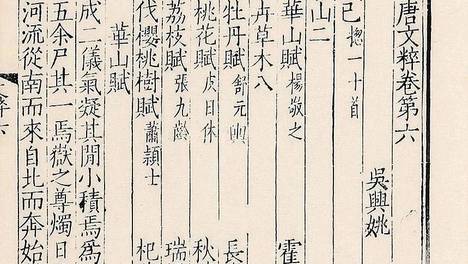 唐文粹卷第六
吳興姚
己 惚一十首
山二
華山賦 楊敬之 霍
卉草木八
牡丹賦 舒元輿 長
桃花賦 皮日休 秋
荔枝賦 張九齡 瑞
伐櫻桃樹賦 蕭穎士 杞
華山賦
成二儀氣凝其閒小積焉爲
五余尸其一焉嶽之尊燭日
河流從南而來自北而奔始